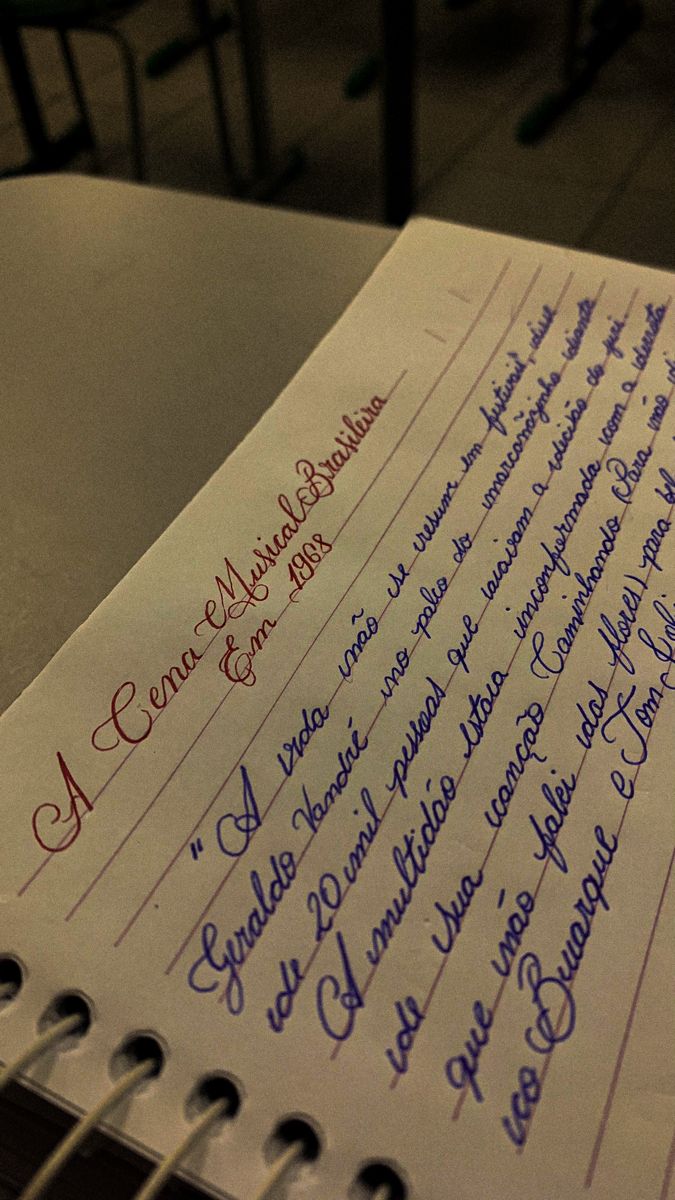 A Cena Musical Brasileira
Em 1968
"A vida não se resume em festivais", disse
Geraldo Vandré no palco do maracanãzinho diante
de 20 mil pessoas que vaiavam a decisão do juri.
A multidão estava inconformada com a derrota
de sua canção Caminhando (Para não di
que não falei das flores) para
co Buarque e Tom Jobi